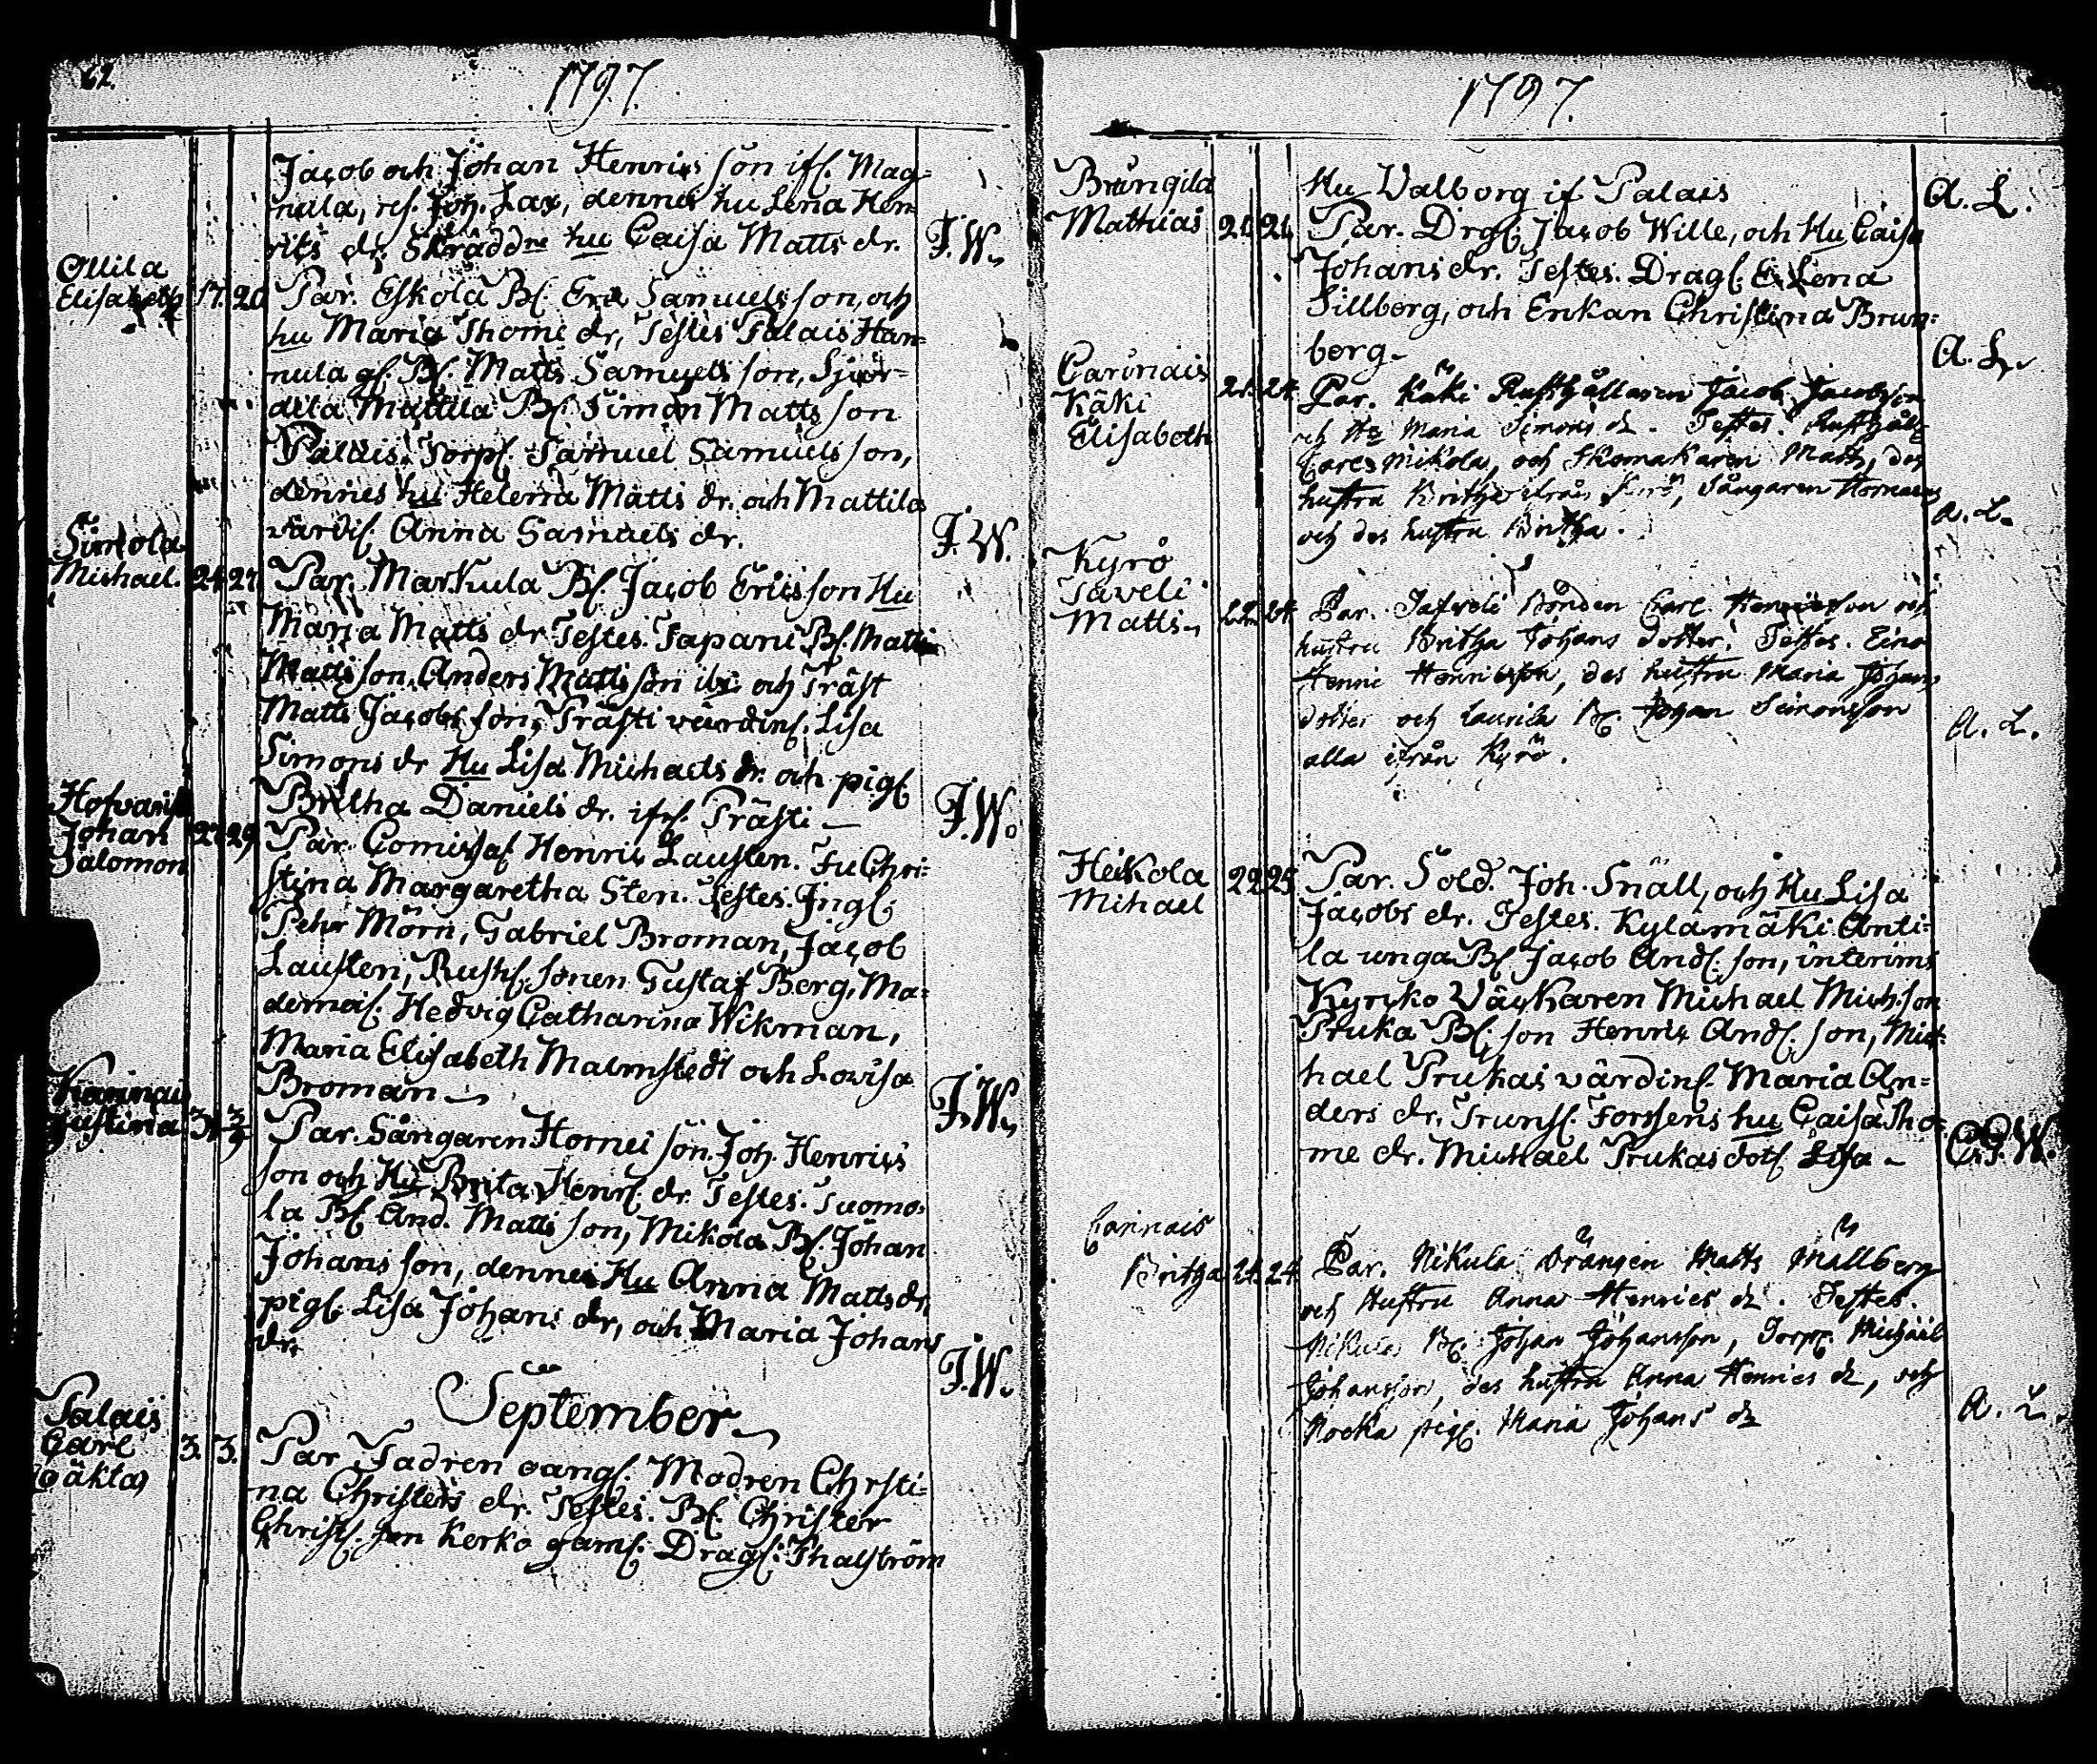 62.
1797.
Jacob och Johan Henrics son ifr. Mag=
nula, res. Joh. Lax, dennes hu Lena Hen
rics dr. Skrädd.re hu Caisa Matts dr.
J.W.
Ollila
Elisabeth 17. 20
Par. Eskola B. Eric Samuels son, och
hu Maria Thome dr, Testes Palais Han=
nula gl. B. Matts Samuels son,
dila Mattila B. Simon Matts son
Palais. Torp. Samuel Samuels son,
dennes hu Helena Matts dr. och Mattila
värdi. Anna Samuels dr.
J.W.
Simola
Michael. 24 27
Par. Markula B. Jacob Erics son Hu
Maria Matts dr Testes. Tapani B. Matts
Matts son, Anders Matts son ibi. och Präst
Matts Jacobs son, Prästi värdin. Lisa
Simons dr Hu Lisa Michaels dr. och pig.
Britha Daniels dr. ifr. Prästi
J.W.
Hofvariss
Johan
Salomon 27 29
Par. Comiss. Henric Lausten. Fu Chri=
stina Margaretha Sten. Testes. Jngl.
Pehr Mörn, Gabriel Broman, Jacob
Lausten, Rusth. sonen Gustaf Berg, Ma=
demois. Hedvig Catharina Wikman,
Maria Elisabeth Malmstedt och Lovisa
Broman
J.W.
Karinais
Justina 31 3/9
Par. Sångaren Hornei son. Joh. Henrics
son och Hu Brita Henr. dr. Testes. Tuomo=
la B. And. Matts son, Mikola B. Johan
Johans son, dennes Hu Anna Matts dr,
pig. Lisa Johans dr, och Maria Johans
dr.
J.W.
September
Palais
Carl
(oäkta) 3. 3.
Par Fadren oang. Modren Chrsti=
na Christers dr. Testes. B. Christer
Christ. son Kerko gaml. Drag. Thalström
1797.
Hu Valborg if Palais
A. L.
Brungila
Mathias 21. 21.
Par. Drg. Jacob Wille, och Hu Caisa
Johans dr. Testes. Drag. E. Lena
Sillberg, och Enkan Christina Brun=
berg
A. L.
Carinais
Käki
Elisabeth 21. 24.
Par. Käki Rusthållaren Jacob Jacobsson
och Hu Maria Simons dr. Testes. Rusthåll.
Carl Mikola, och Skomakaren Matts, des
hustru Britha ifrån Kyrö, Sångaren Hornæus
och des hustru Britha.
A. L.
Kyrö
Taveli
Matts 22. 24.
Par. Tafveli Bonden Carl Henricsson och
hustru Britha Johans dotter. Testes. Eino
Henric Henricsson, des hustru Maria Johans
dotter och Laurila B. Johan Simonsson
alla ifrån Kyrö.
A. L.
Heikola
Mihael 22 25
Par. Sold. Joh. Snäll, och Hu Lisa
Jacobs dr. Testes. Kylämäki Anti=
la unga B. Jacob And. son, interims
Kyrcko Väcktaren Michael Mich. son
Pruka B. son Henric And. son, Mic=
hael Prukas värdin. Maria An=
ders dr, Trums. Forssens hu Caisa Tho=
me dr. Michael Prukas dot. Lisa
C.G.W.
Carinais
Britha 21. 24.
Par. Nikula Drängen Matts Mällberg
och Hustru Anna Henrics dr. Testes.
Nikula B. Johan Johansson, Torp. Michaël
Johansson, des hustru Anna Henrics dr, och
Nocka pig. Maria Johans dr
A. L.